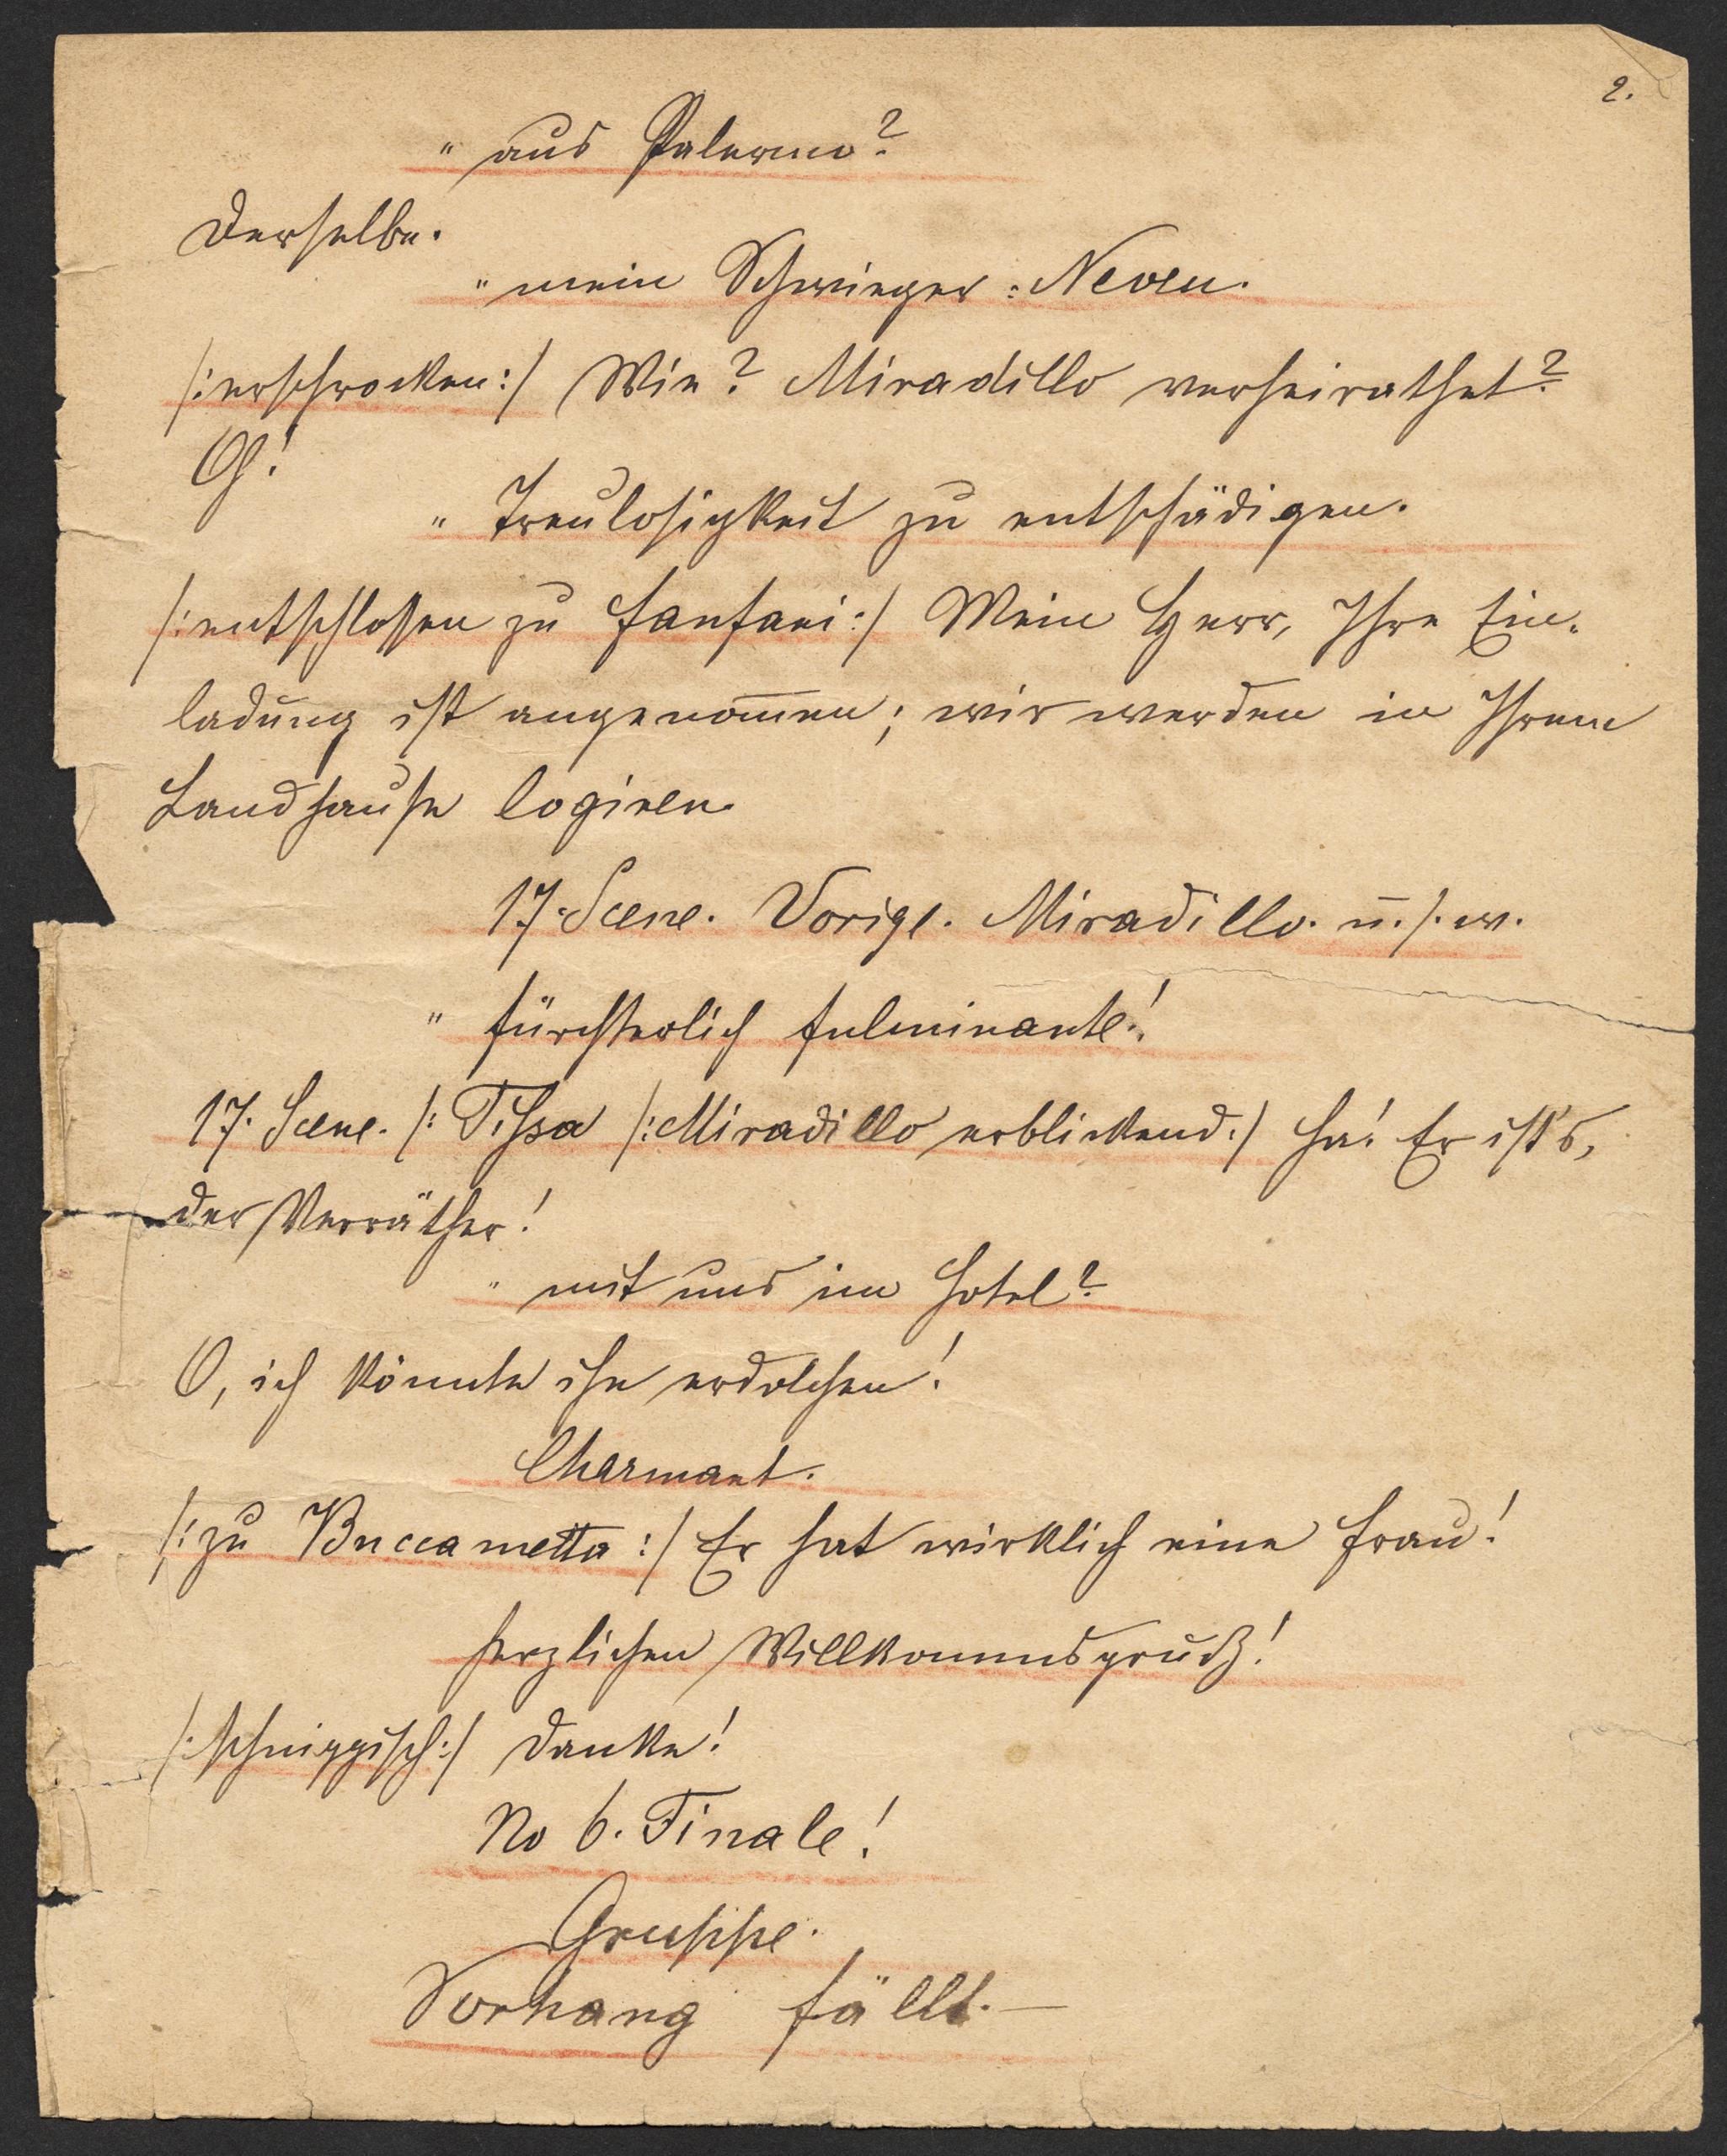 2.
" aus Palermo?
Derselbe.
" mein Schwieger=Neveu.
/: erschrocken :/ Wie? Miradillo verheirathet?
Oh!
" Treulosigkeit zu entschädigen.
/: entschlossen zu Fanfani :/ Mein Herr, Ihre Ein-
ladung ist angenom̄en; wir werden in Ihrem
Landhause logiren.
17. Scene. Vorige. Miradillo. u. s. w.
" fürchterlich fulminante!
17. Scene. /: Tissa /: Miradillo erblickend :/ Ha! Er ist's,
der Verräther!
" mit uns im Hotel?
O, ich könnte ihn erdolchen!
Charmant.
/: zu Buccametta :/ Er hat wirklich eine Frau!
herzlichen Willkommsgruß!
/: schnippisch :/ Danke!
No 6. Finale!
Gruppe.
Vorhang fällt. —